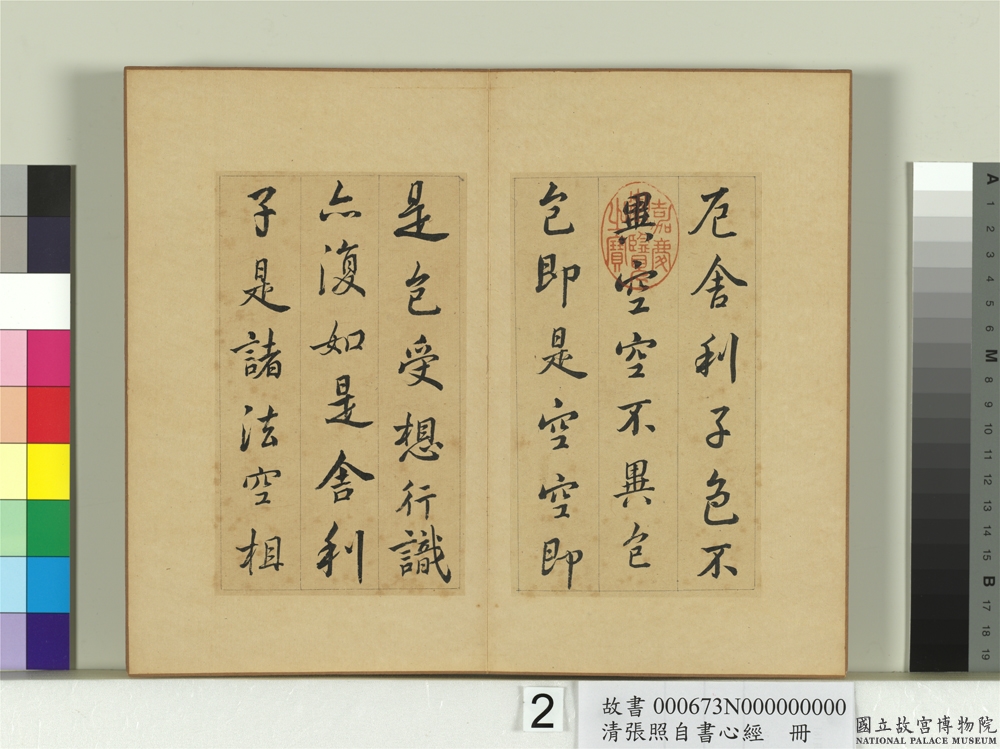 厄舍利子色不
異空空不異色
色即是空空即
是色受想行識
亦復如是舍利
子是諸法空相
嘉慶御覽之寶
A 1 2 3 4 5 6 M 8 9 10 11 12 13 14 15 B 17 18 19
2
故書 000673N000000000
清張照自書心經 冊
國立故宮博物院
NATIONAL PALACE MUSEUM